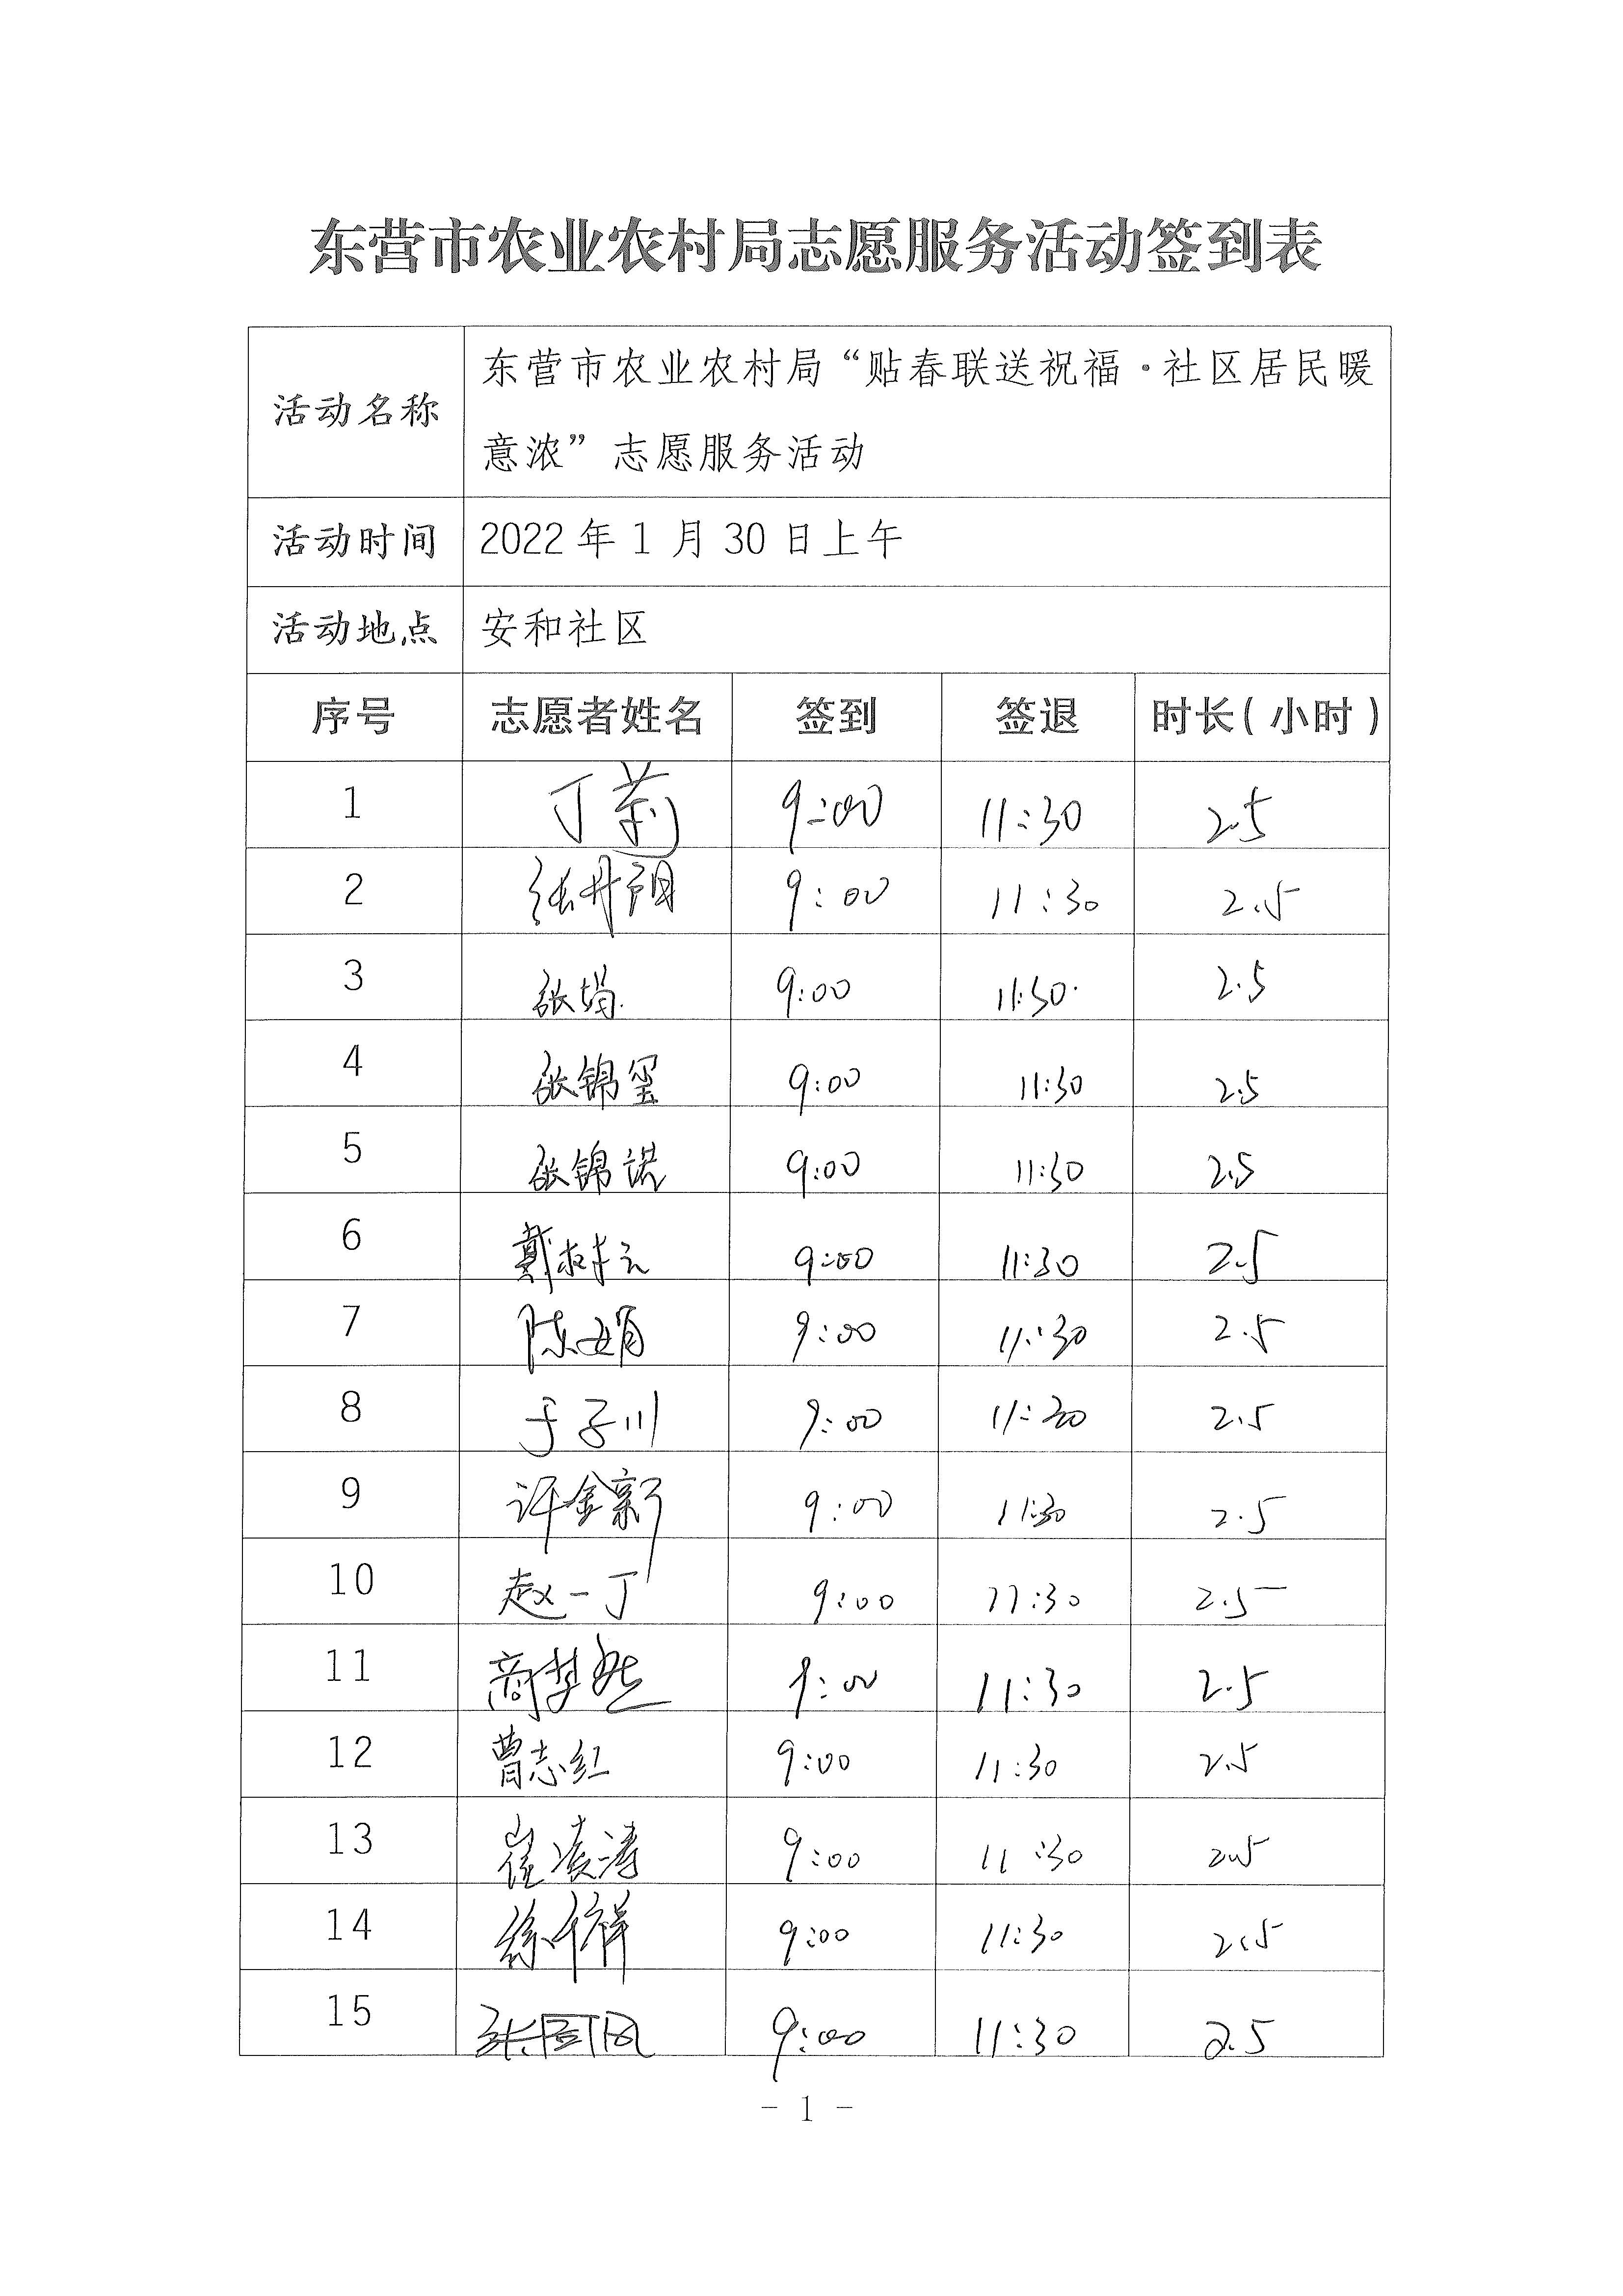 东营市农业农村局志愿服务活动签到表
活动名称
东营市农业农村局“贴春联送祝福·社区居民暖
意浓”志愿服务活动
活动时间 2022年1月30日上午
活动地点 安和社区
序号 志愿者姓名 签到 签退 时长(小时)
1 丁莉 9:00 11:30 2.5
2 张丹阳 9:00 11:30 2.5
3 张娟 9:00 11:30 2.5
4 张锦玺 9:00 11:30 2.5
5 张锦诺 9:00 11:30 2.5
6 戴树云 9:00 11:30 2.5
7 陈娟 9:00 11:30 2.5
8 于子川 9:00 11:30 2.5
9 许金新 9:00 11:30 2.5
10 赵一丁 9:00 11:30 2.5
11 商梦 9:00 11:30 2.5
12 曹志红 9:00 11:30 2.5
13 崔凌涛 9:00 11:30 2.5
14 徐 祥 9:00 11:30 2.5
15 张国风 9:00 11:30 2.5
- 1 -